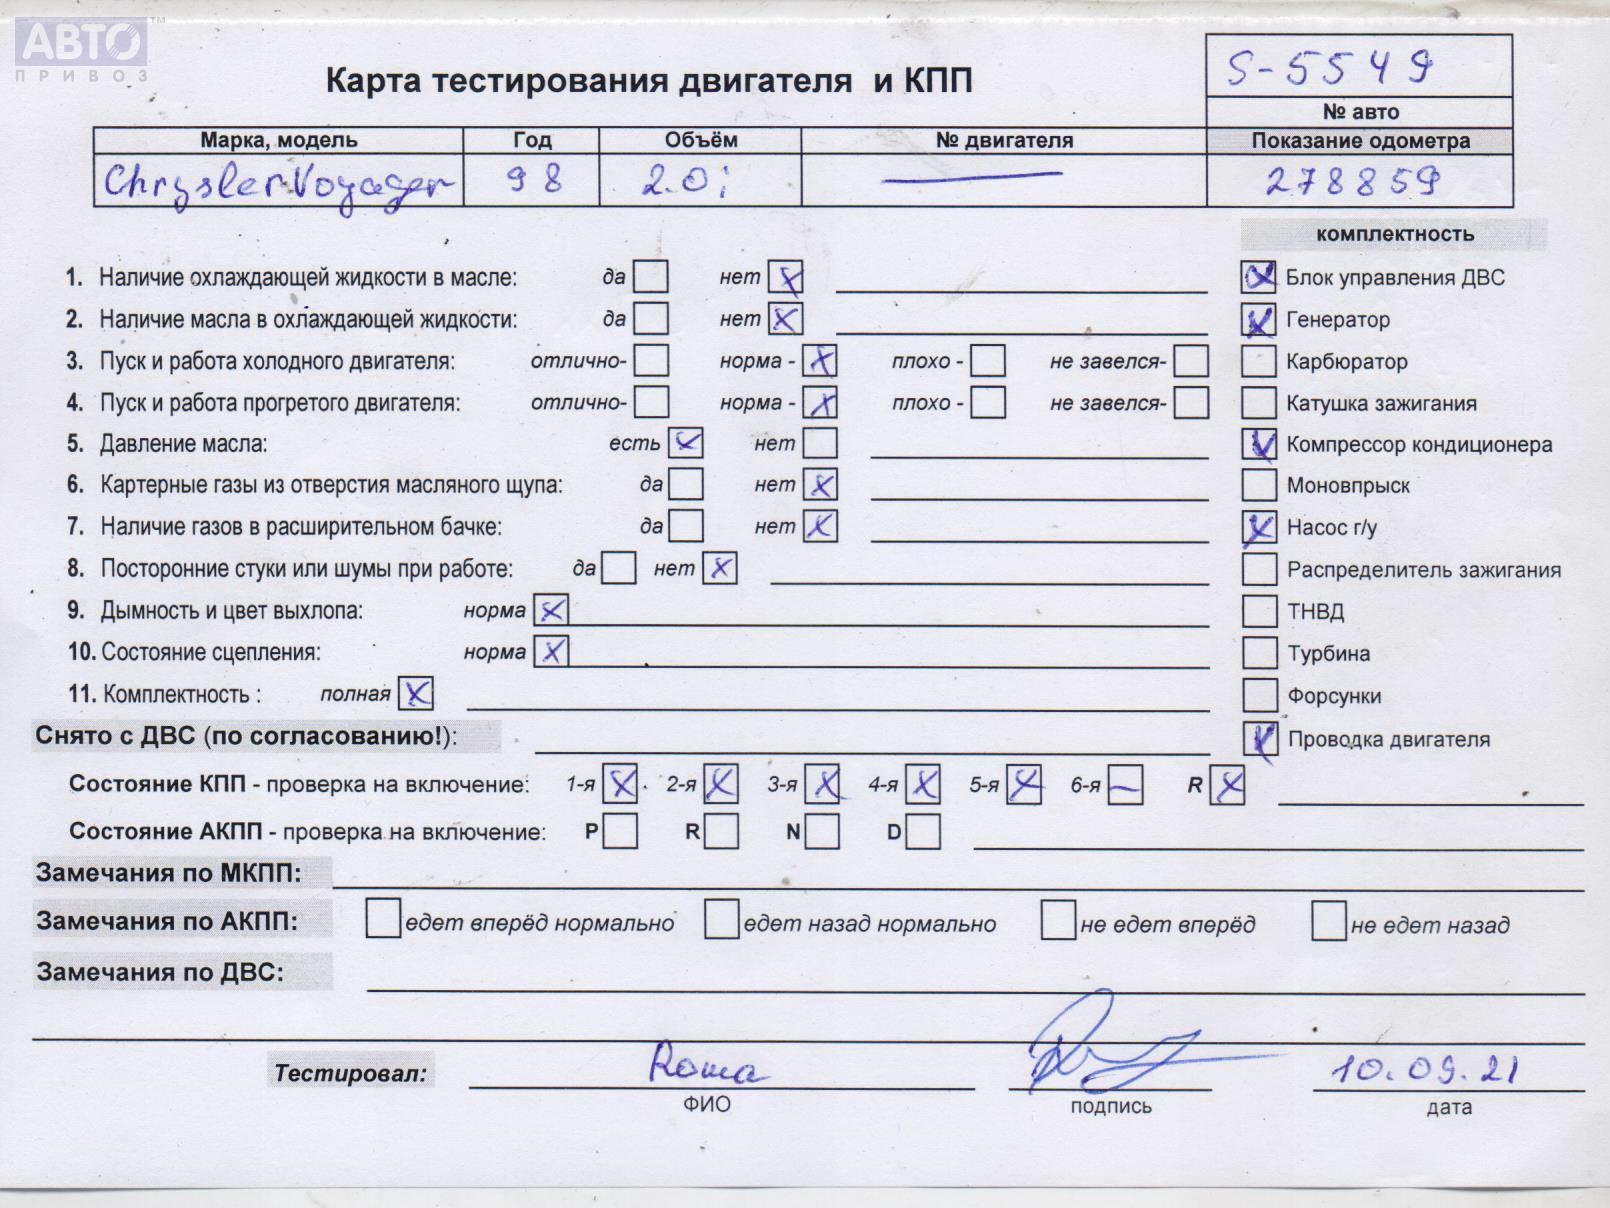 АВТО ™
ПРИВОЗ
Карта тестирования двигателя и КПП
S-5549
№ авто
Марка, модель Год Объём № двигателя Показание одометра
Chrysler Voyager 98 2.0i 278859
комплектность
1. Наличие охлаждающей жидкости в масле: да нет X
Блок управления ДВС
2. Наличие масла в охлаждающей жидкости: да нет X
Генератор
3. Пуск и работа холодного двигателя: отлично- норма - X плохо - не завелся-
Карбюратор
4. Пуск и работа прогретого двигателя: отлично- норма - X плохо - не завелся-
Катушка зажигания
5. Давление масла: есть X нет
Компрессор кондиционера
6. Картерные газы из отверстия масляного щупа: да нет X
Моновпрыск
7. Наличие газов в расширительном бачке: да нет X
Насос г/у
8. Посторонние стуки или шумы при работе: да нет X
Распределитель зажигания
9. Дымность и цвет выхлопа: норма X
ТНВД
10. Состояние сцепления: норма X
Турбина
11. Комплектность : полная X
Форсунки
Снято с ДВС (по согласованию!):
Проводка двигателя
Состояние КПП - проверка на включение: 1-я X 2-я X 3-я X 4-я X 5-я X 6-я – R X
Состояние АКПП - проверка на включение: P R N D
Замечания по МКПП:
Замечания по АКПП: едет вперёд нормально едет назад нормально не едет вперёд не едет назад
Замечания по ДВС:
Тестировал: Roma 10.09.21
ФИО подпись дата